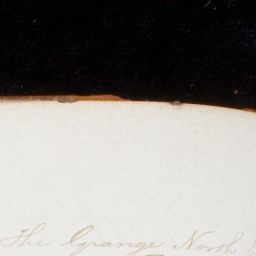 The Grange North